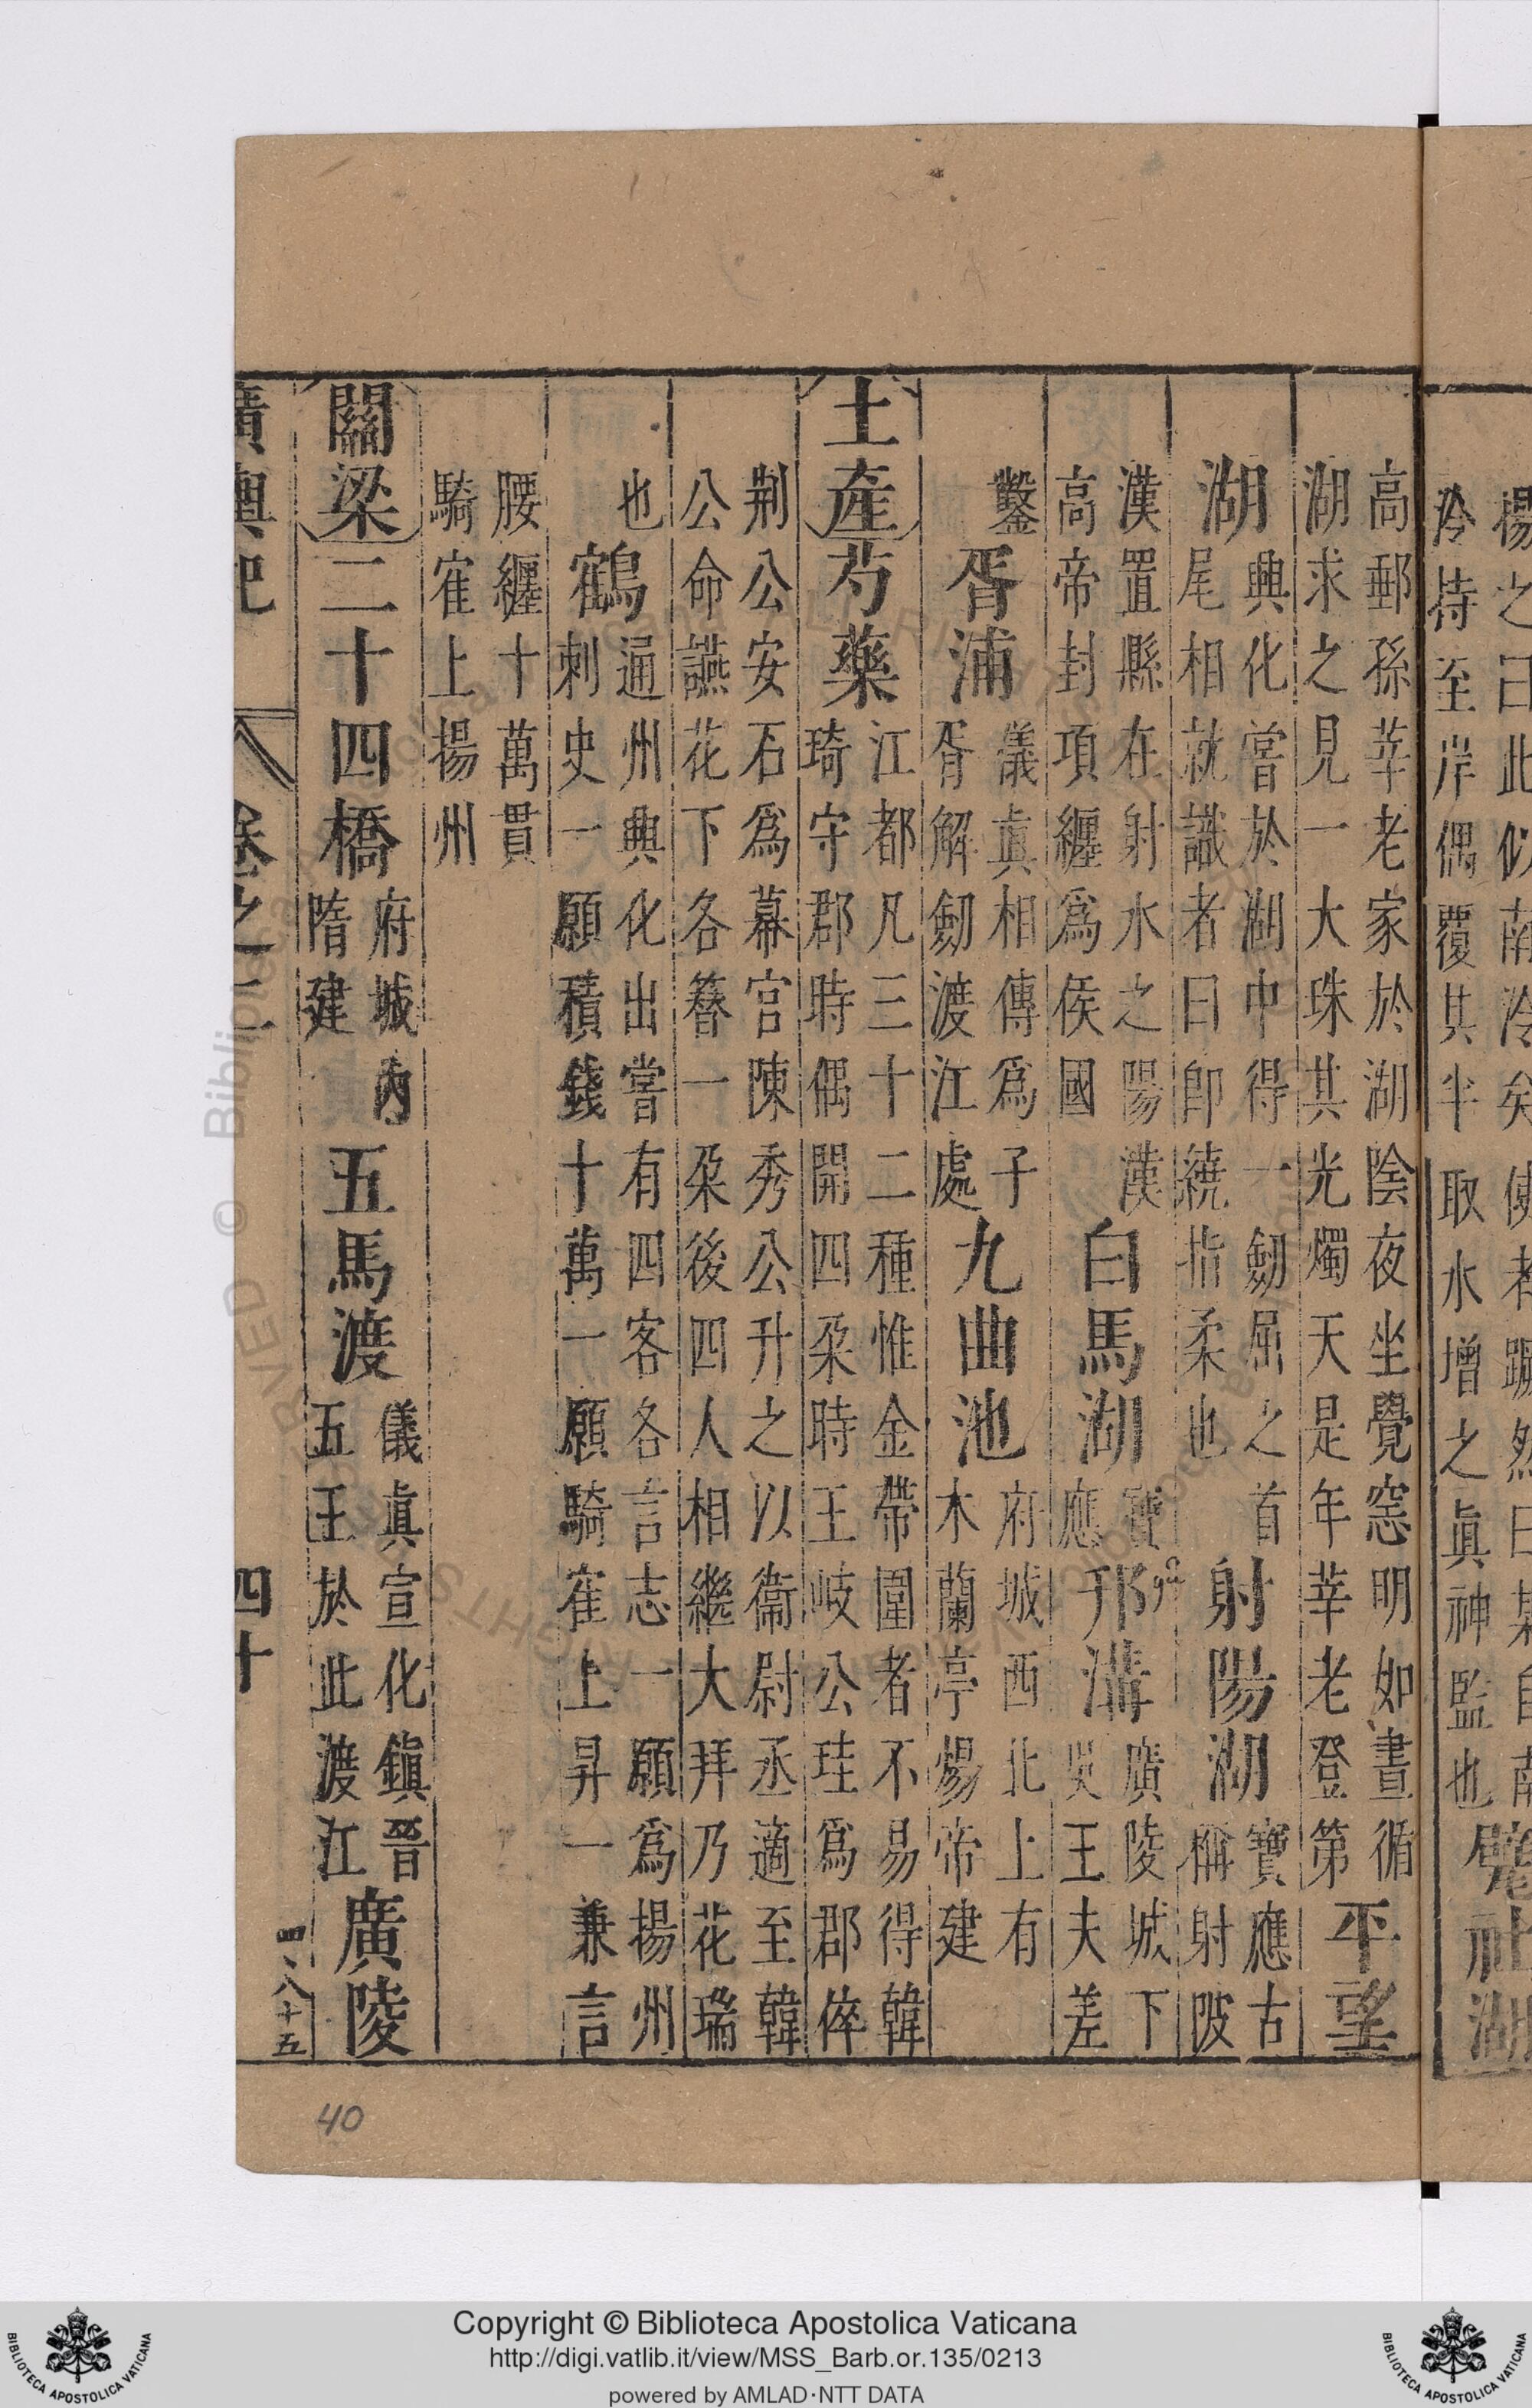 揚之曰此似南泠矣使者蹶然曰某自南
泠持至岸偶覆其半取水增之眞神監也 甓社湖
高郵孫莘老家於湖陰夜坐覺窓明如晝循
湖求之見一大珠其光燭天是年莘老登第 平望
湖 興化嘗於湖中得一劒屈之首
尾相就識者曰卽繞指柔也 射陽湖 寶應古
稱射陂
漢置縣在射水之陽漢
高帝封項纏爲侯國 白馬湖 寶
應 邗溝 廣陵城下
吳王夫差
鑿 胥浦 儀眞相傳爲子
胥解劒渡江處 九曲池 府城西北上有
木蘭亭煬帝建
土產 芍藥 江都凡三十二種惟金帶圍者不易得韓
琦守郡時偶開四朶時王岐公珪爲郡倅
荆公安石爲幕官陳秀公升之以衞尉丞適至韓
公命讌花下各簪一朶後四人相繼大拜乃花瑞
也 鶴 通州典化出嘗有四客各言志一願爲揚州
刺史一願積錢十萬一願騎隺上昇一兼言
腰纏十萬貫
騎隺上揚州
關梁 二十四橋 府城內
隋建 五馬渡 儀眞宣化鎭晉
五王於此渡江 廣陵
廣輿記 卷之二 四十
四、八十五
40
Copyright © Biblioteca Apostolica Vaticana
http://digi.vatlib.it/view/MSS_Barb.or.135/0213
powered by AMLAD·NTT DATA
BIBLIOTECA APOSTOLICA VATICANA
BIBLIOTECA APOSTOLICA VATICANA